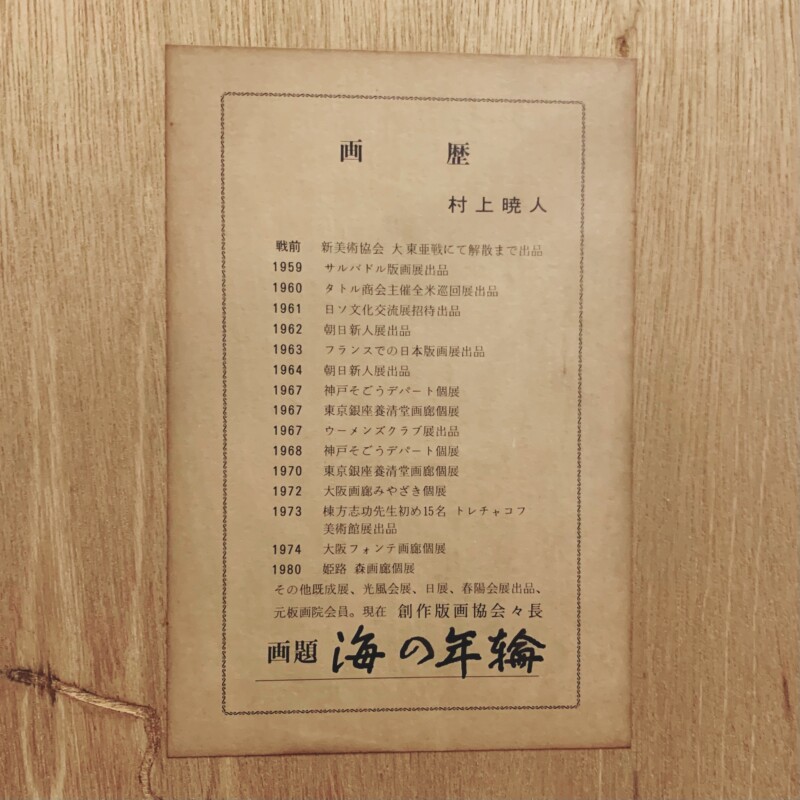 画歴
村上暁人
戦前 新美術協会 大東亜戦にて解散まで出品
1959 サルバドル版画展出品
1960 タトル商会主催全米巡回展出品
1961 日ソ文化交流展招待出品
1962 朝日新人展出品
1963 フランスでの日本版画展出品
1964 朝日新人展出品
1967 神戸そごうデパート個展
1967 東京銀座養清堂画廊個展
1967 ウーメンズクラブ展出品
1968 神戸そごうデパート個展
1970 東京銀座養清堂画廊個展
1972 大阪画廊みやざき個展
1973 棟方志功先生初め15名 トレチャコフ
美術館展出品
1974 大阪フォンテ画廊個展
1980 姫路 森画廊個展
その他既成展、光風会展、日展、春陽会展出品、
元板画院会員。現在 創作版画協会々長
画題 海の年輪